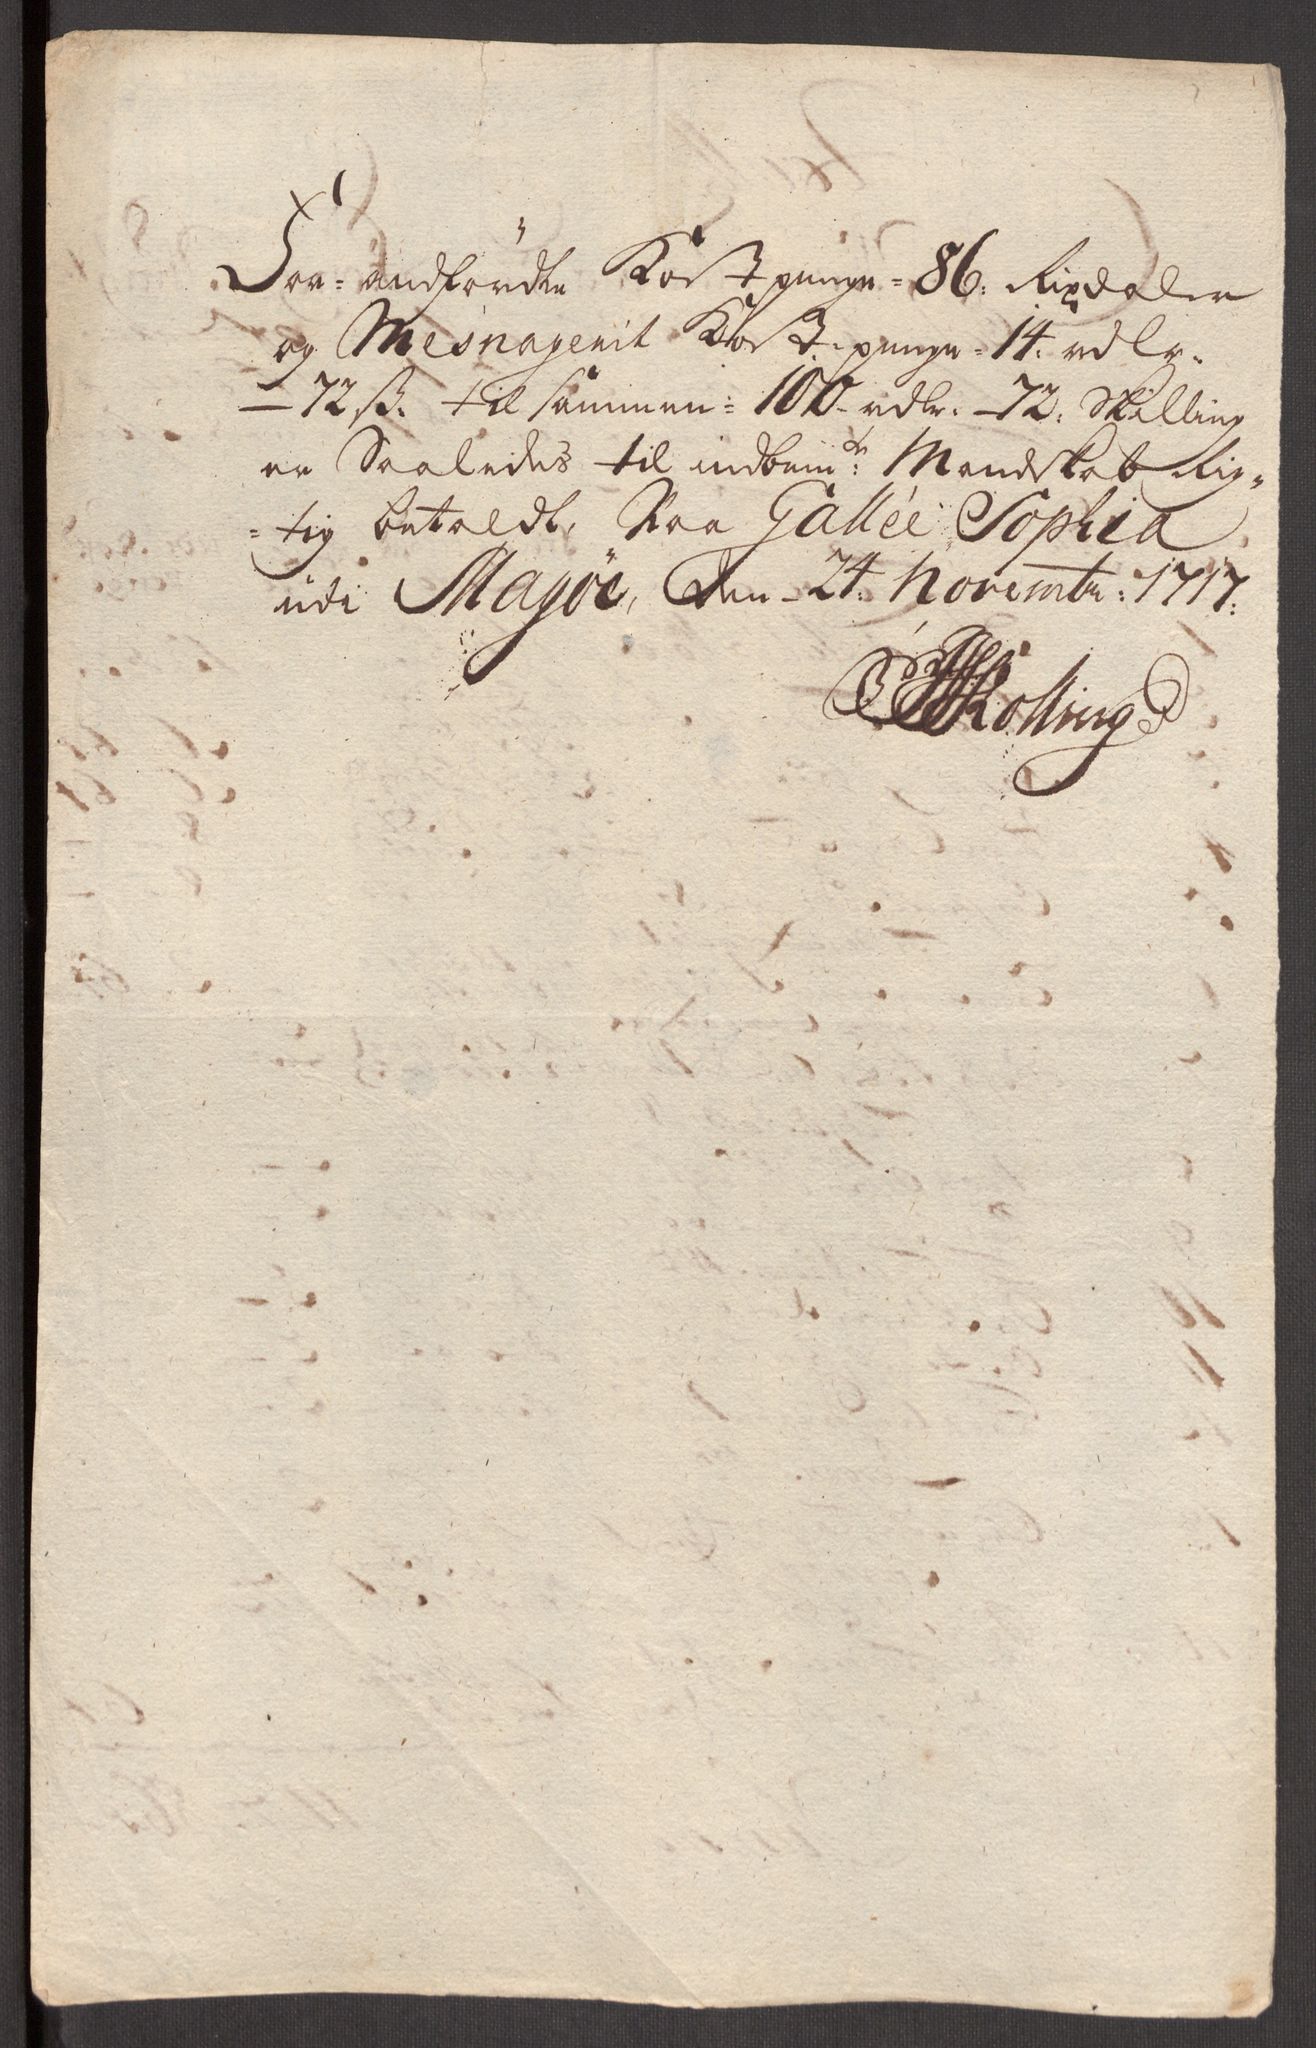 For- andførdte Kost penge = 86: Rixdaler
og Mesnagerit Kost-penge = 14. rdlr.
— 72 ß. til sammen = 100 rdlr. — 72. Skilling
er Saaledes til indbem:te Mandskab Rig=
=tig betaldt, Paa Gallée Sophia
udi Magöe, Den 24. Novembr: 1717.
Kolling